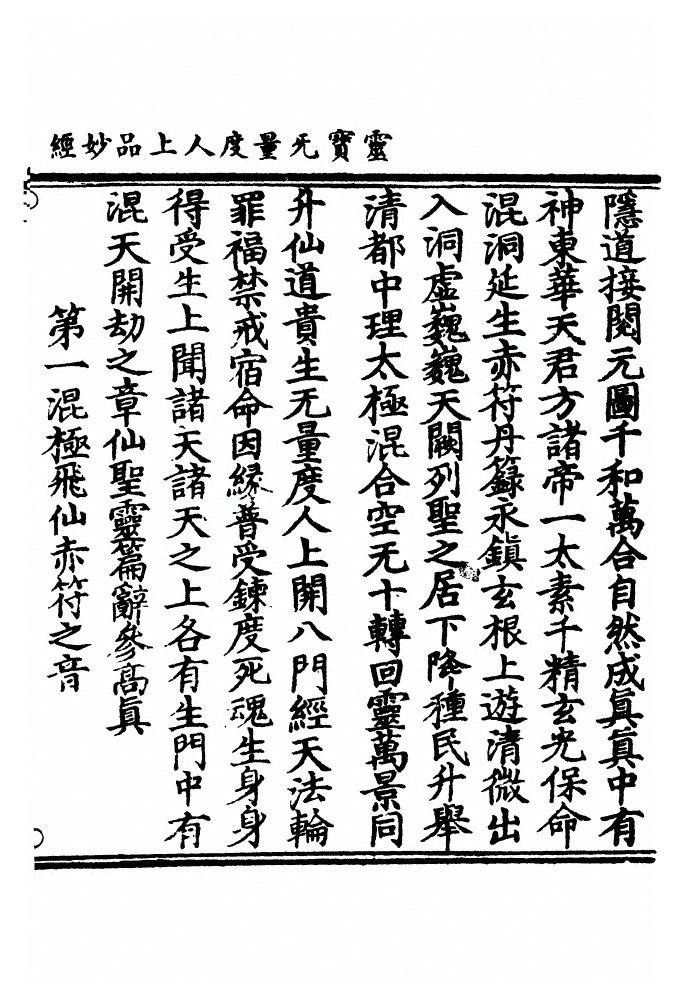 靈寶无量度人上品妙經
隱道接閱元圖千和萬合自然成眞眞中有
神東華天君方諸帝一太素千精玄光保命
混洞延生赤符丹籙永鎭玄根上遊清微出
入洞虛巍巍天闕列聖之居下降種民升舉
清都中理太極混合空无十轉回靈萬景同
升仙道貴生无量度人上開八門經天法輪
罪福禁戒宿命因緣普受鍊度死魂生身身
得受生上聞諸天諸天之上各有生門中有
混天開劫之章仙聖靈篇辭參高眞
第一混極飛仙赤符之音